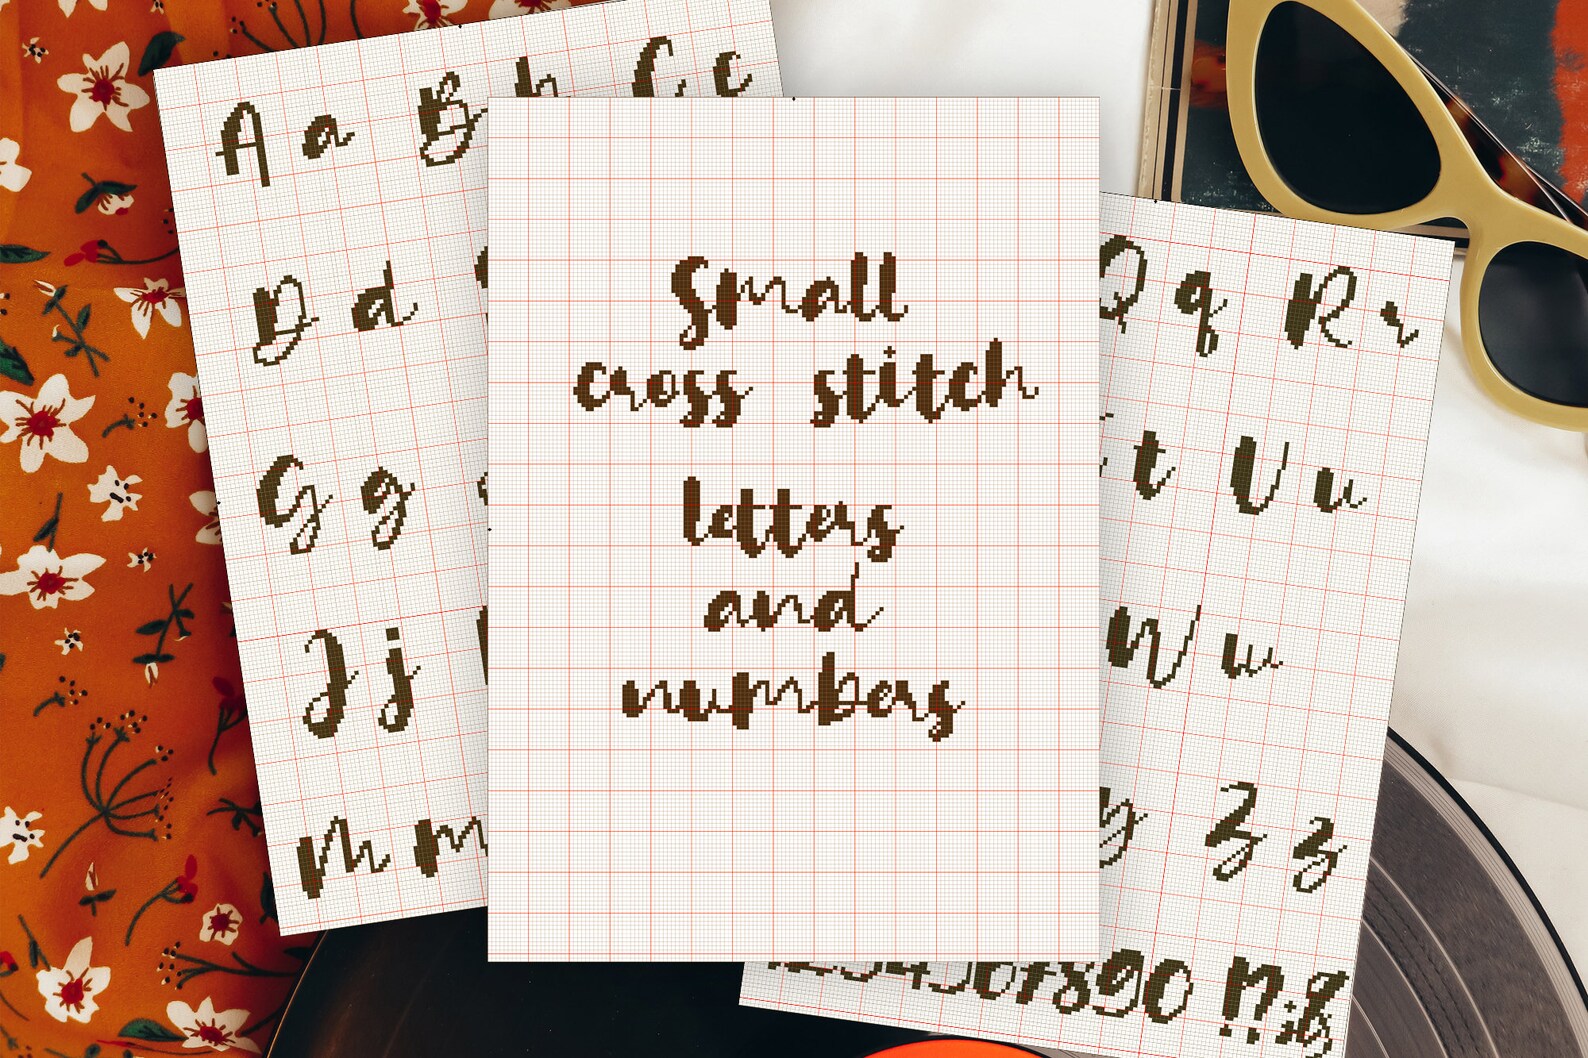 Aa Bb Cc
Dd
Gg
Jj
Mm
Small
cross stitch
letters
and
numbers
Qq Rr
t Uu
Ww
y Zz
1234567890 !?;&